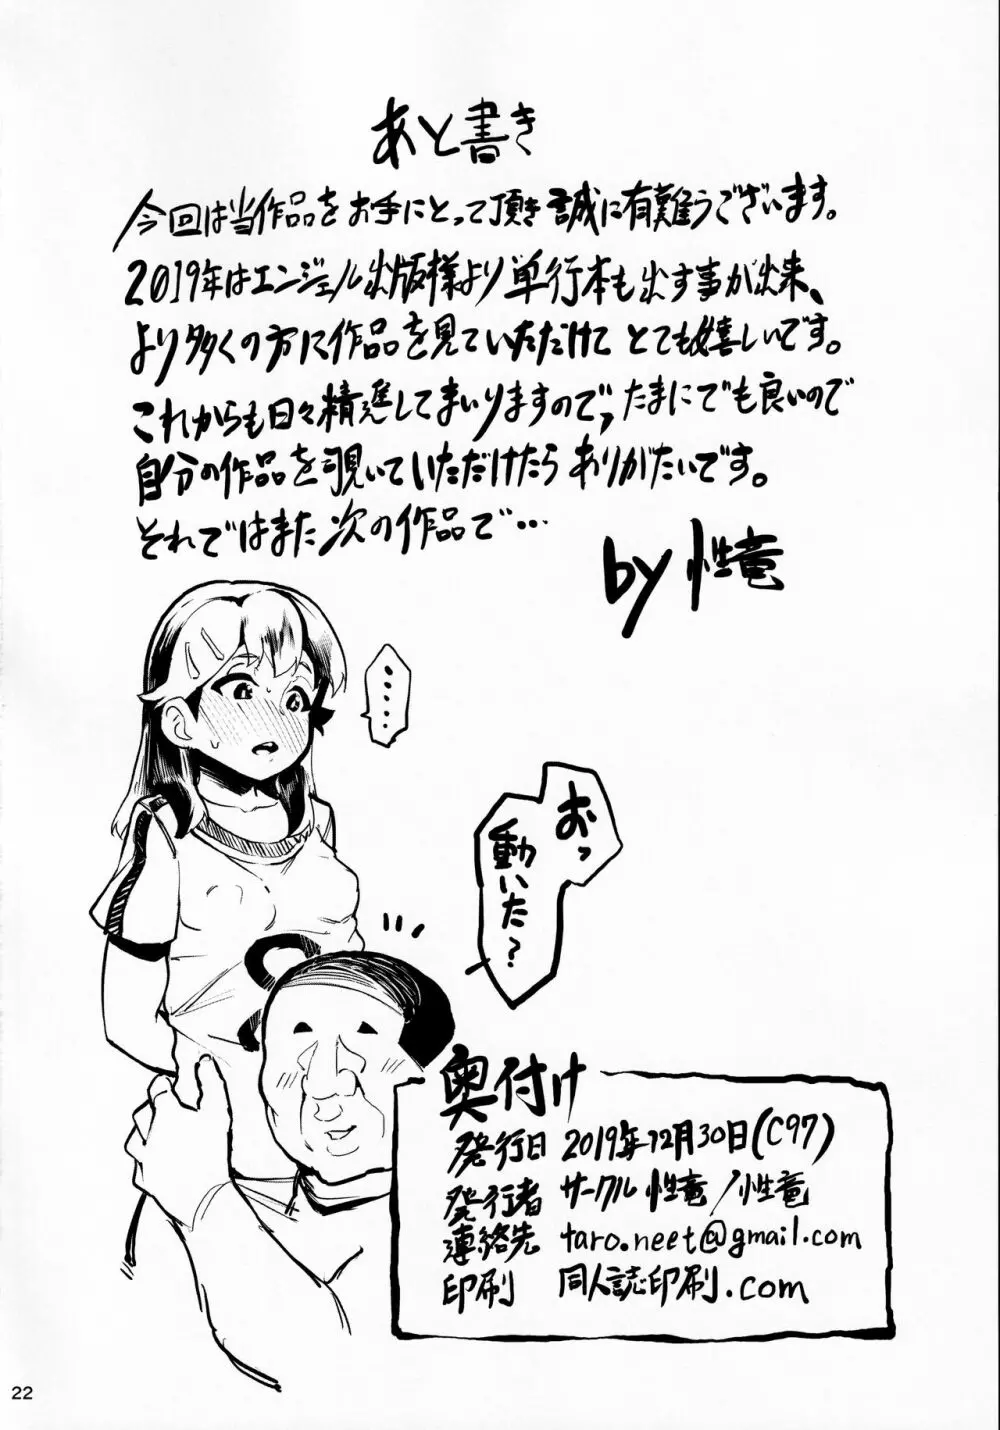 あと書き
今回は当作品をお手にとって頂き誠に有難うございます。
2019年はエンジェル出版様より単行本も出す事が出来、
より多くの方に作品を見ていただけてとても嬉しいです。
これからも日々精進してまいりますので、たまにでも良いので
自分の作品を覗いていただけたらありがたいです。
それではまた次の作品で…
by 性竜
……
おっ
動いた?
奥付け
発行日 2019年12月30日(C97)
発行者 サークル 性竜/性竜
連絡先 taro.neet@gmail.com
印刷 同人誌印刷.com
22